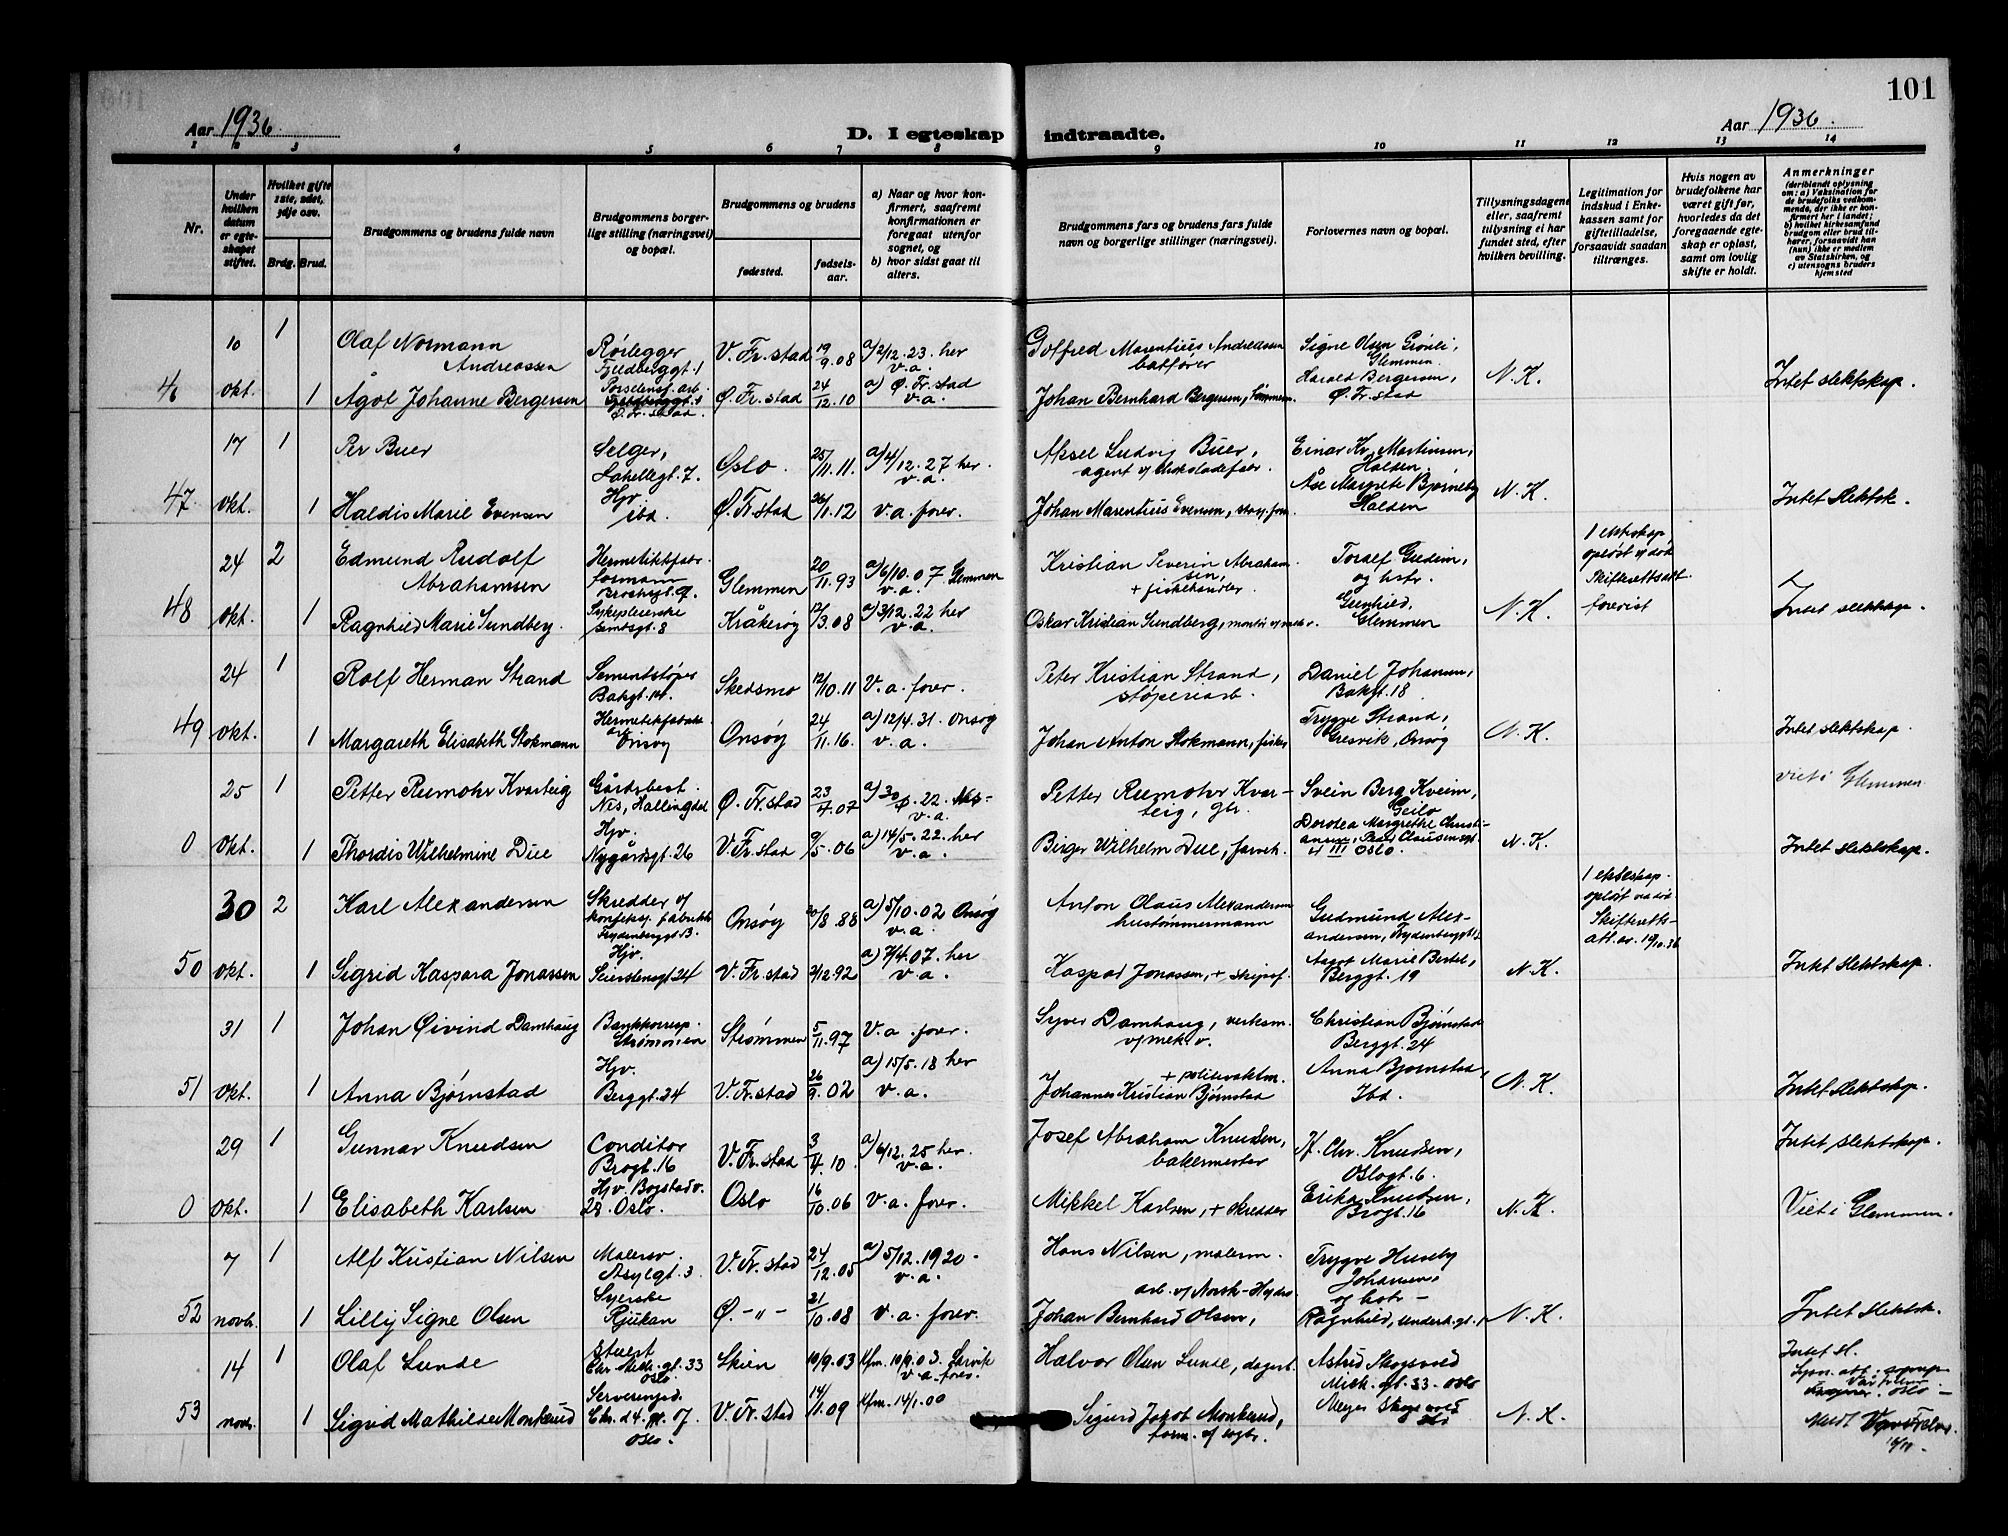 101
Aar 1936.
D. I egteskap indtraadte.
Aar 1936.
1 2 3 4 5 6 7 8 9 10 11 12 13 14
Nr.
Under hvilken datum er egteskapet stiftet.
Hvilket gifte 1ste, 2det, 3dje osv.
Brdg. Brud.
Brudgommens og brudens fulde navn
Brudgommens borgerlige stilling (næringsvei) og bopæl.
Brudgommens og brudens
fødested.
fødselsaar.
a) Naar og hvor konfirmert, saafremt konfirmationen er foregaat utenfor sognet, og
b) hvor sidst gaat til alters.
Brudgommens fars og brudens fars fulde navn og borgerlige stillinger (næringsvei).
Forlovernes navn og bopæl.
Tillysningsdagene eller, saafremt tillysning ei har fundet sted, efter hvilken bevilling.
Legitimation for indskud i Enkekassen samt for giftetilladelse, forsaavidt saadan tiltrænges.
Hvis nogen av brudefolkene har været gift før, hvorledes da det foregaaende egteskap er opløst, samt om lovlig skifte er holdt.
Anmerkninger
(deriblandt oplysning om: a) Vaksination for de brudefolks vedkommende, der ikke er konfirmert her i landet; b) hvilket kirkesamfund brudgom eller brud tilhører, forsaavidt han (hun) ikke er medlem av Statskirken, og c) utensogns bruders hjemsted
10 1 Olaf Normann Andreassen
Rørlegger
V. Fr.stad 19/9.08 a) 2/12.23. her v.a.
Gotfred Marentius Andreassen båtfører
Signe Olsen Grønli, Glemmen
okt. 1 Ågot Johanne Bergersen
Porselensf. arb. Ø. Fr.stad.
Ø. Fr.stad 24/12.10 a) Ø. Fr.stad v.a.
Johan Bernhard Bergersen,
Harald Bergersen, Ø. Fr.stad
N.K. Intet slektskap.
47. 17 okt. 1 Per Buer
Selger,
Oslo. 25/11.11. a) 4/12.27 her. v.a.
Aksel Ludvig Buer, agent v/ chokoladefabr.
Einar Kr. Martinsen, Halden
1 Haldis Marie Evensen
Hjv. ibd.
Ø. Fr.stad 26/11.12 v.a. forer.
Johan Marentius Evensen,
Åse Margrete Bjørneby Halden
N.K. Intet slektsk.
48 24 okt. 2 Edmund Rudolf Abrahamsen
Hermetikkfabr. formann
Glemmen 20/11.93 a) 6/10.07 Glemmen v.a.
Kristian Severin Abrahamsen, + fiskehandler.
Toralf Gudim, og hstr. Gunhild, Glemmen
1 ekteskap opløst v/ død Skifterettsatt. forevist
1 Ragnhild Marie Sundberg.
Sykepleierske
Kråkerøy 12/3.08 a) 3/12.22 her v.a.
Oskar Kristian Sundberg,
N.K. Intet slektskap.
49 24 okt. 1 Rolf Herman Strand
Sementstøper Bakgt. 14.
Skedsmo 12/10.11 v.a. forer.
Peter Kristian Strand, støperiarb.
Daniel Johansen, Bakgt. 18
1 Margareth Elisabeth Stokmann
Hermetikfabrikk arb. Onsøy
Onsøy 24/11.16. a) 12/4.31. Onsøy v.a.
Johan Anton Stokmann, fisker
Trygve Strand, Gresvik, Onsøy
N.K. Intet slektskap.
0 25 okt. 1 Petter Rumohr Kvarteig
Gårdsbest. Nes, Hallingdal
Ø. Fr.stad 23/4.07 a) 30/ .22. Nes- v.a.
Petter Rumohr Kvarteig, gbr.
Svein Berg Kveim, Geilo
Viet i Glemmen
1 Thordis Wilhelmine Due
Hjv. Nygårdsgt. 26
V. Fr.stad 9/5.06 a) 14/5.22. her v.a.
Birger Wilhelm Due,
Dorodea Margrethe Christiansen, 4 III Oslo.
N.K. Intet slektskap.
50 30 okt. 2 Karl Alexandersen
Skredder v/ konfeksj. fabrikk Frydenberggt.
Onsøy 20/8.88 a) 5/10.02 Onsøy v.a.
Anton Olaus Alexandersen hustømmermann
Gudmund Alexandersen, Frydenberggt.
1 ekteskap opløst ved død Skifterettsatt. av. 19/10.36
1 Sigrid Kaspara Jonassen
Hjv. Seierstensgt. 24
V. Fr.stad 2/12.92 a) 7/4.07. her v.a.
Kaspar Jonassen, +
Aagot Marie Bertel, Berggt. 19
N.K. Intet slektskap.
51 31 okt. 1 Johan Øivind Damhaug
Bankkorresp. Strømmen
Strømmen 5/11.97 v.a. forer.
Syver Damhaug, verksm. v/ mek. v.
Christian Bjørnstad Berggt. 24
1 Anna Bjørnstad
Hjv. Berggt. 24
V. Fr.stad 26/9.02 a) 15/5.18 her v.a.
+ politivaktm. Johannes Kristian Bjørnstad
Anna Bjørnstad, Ibd.
N.K. Intet slektskap.
0 29 okt. 1 Gunnar Knudsen
Conditor Brogt. 16
V. Fr.stad 3/4.10 a) 6/12.25 her. v.a.
Josef Abraham Knudsen, bakermester
Chr. Knudsen, Oslogt. 6.
Intet slektskap.
1 Elisabeth Karlsen
Hjv. Bogstadv. 28. Oslo.
Oslo 16/10.06 v.a. forer.
Mikkel Karlsen, + skredder
Erika Knudsen, Brogt. 16
N.K. Viet i Glemmen.
52 7 novb. 1 Alf Kristian Nilsen
Malersv. Asylgt. 3
V. Fr.stad 24/12.05 a) 5/12.1920. v.a.
Hans Nilsen, malerm.
Trygve Huseby Johansen, og hstr.
1 Lilly Signe Olsen
Syerske Rjukan
Ø. -"- 21/10.08 v.a. forer.
arb. v/ Norsk-Hydro Johan Bernhard Olsen,
Ragnhild,
N.K. Intet slektsk.
53 14 novb. 1 Olaf Lunde
Stuert Chr. Mich. gt. 33 Oslo
Skien 10/9.03 Kfm. v.a. forer.
Halvor Olsen Lunde,
Astrid Skogsveid Mich. gt. 33 - Oslo
Intet sl.
1 Sigrid Mathilde Monkerud
V. Fr.stad 14/1.09 Kfm. 14/1.00
Oslo.
Sigurd Jakob Monkerud,
N.K.